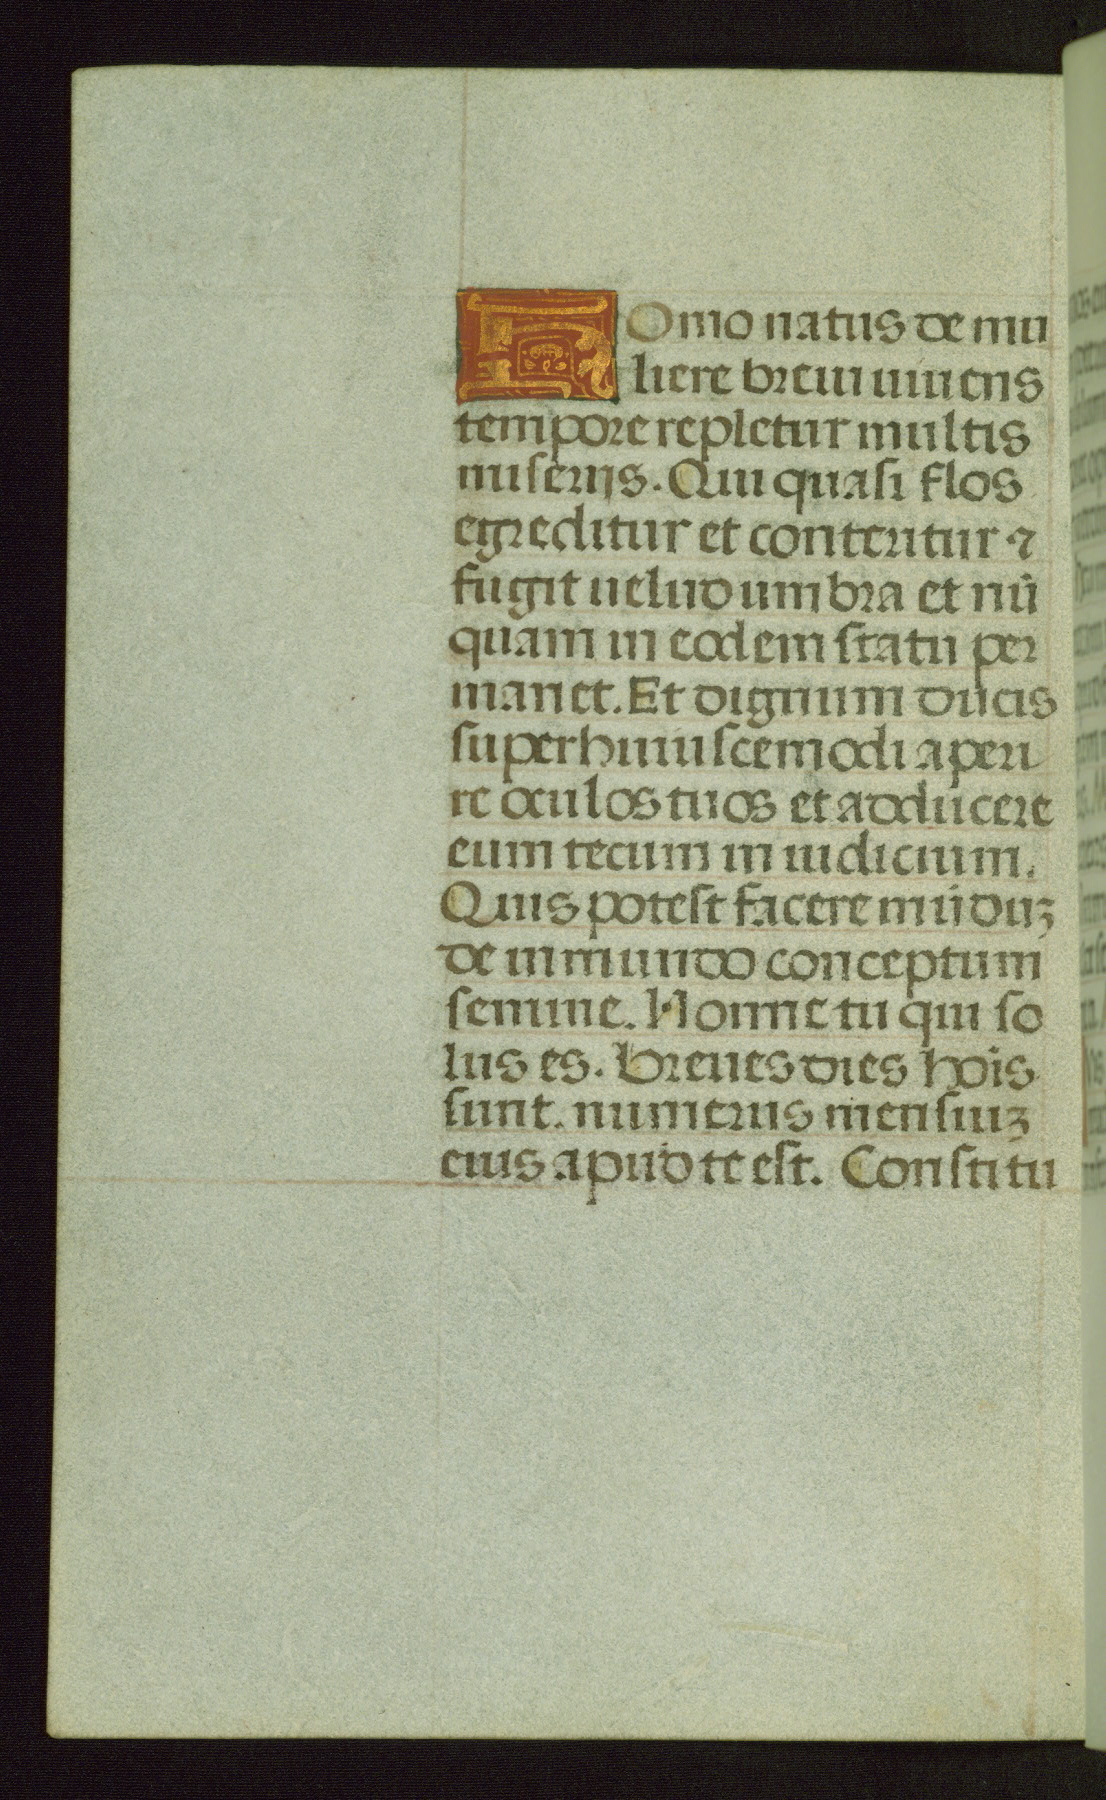 HOmo natus de mu
liere breui uiuens
tempore repletur multis
miserijs. Qui quasi flos
egreditur et conteritur ⁊
fugit uelud umbra et nū
quam in eodem statu per
manet. Et dignum ducis
super huiuscemodi aperi
re oculos tuos et adducere
eum tecum in iudicium.
Quis potest facere mūduꝫ
de inmundo conceptum
semine. Nonne tu qui so
lus es. Breues dies hoīs
sunt. numerus mensiuꝫ
eius apud te est. Constitu